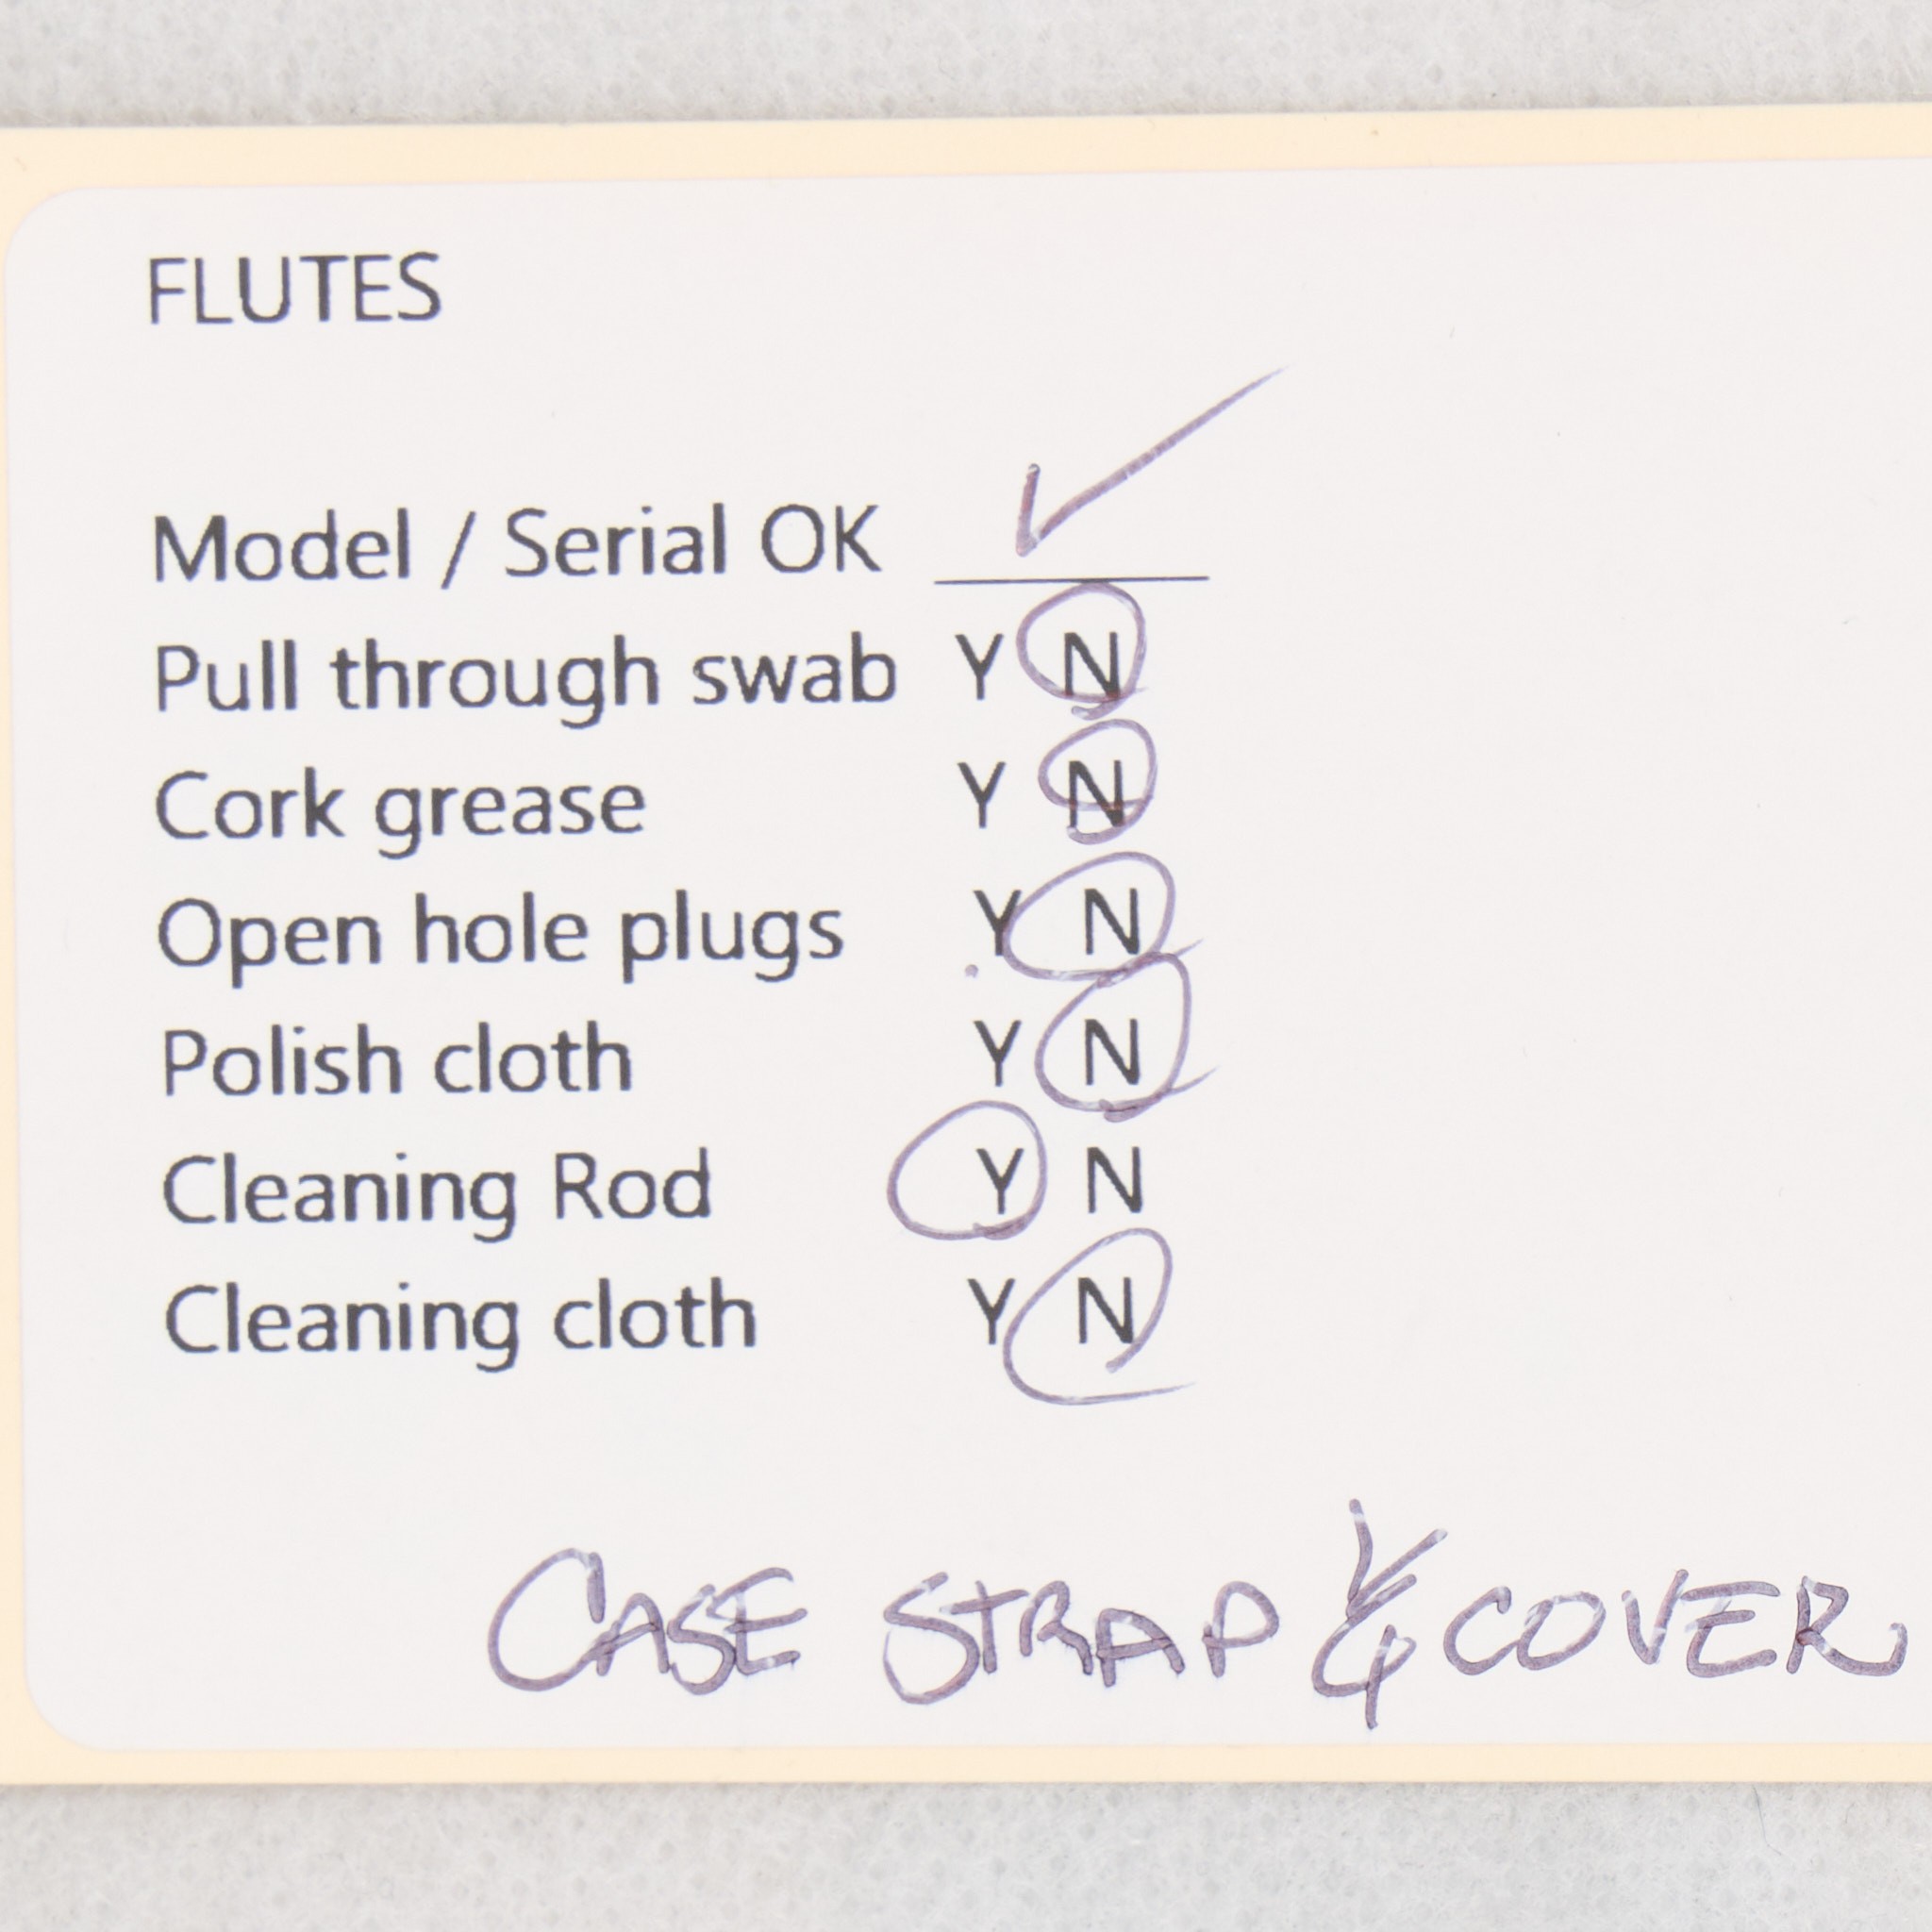 FLUTES
Model / Serial OK ✓
Pull through swab Y N
Cork grease Y N
Open hole plugs Y N
Polish cloth Y N
Cleaning Rod Y N
Cleaning cloth Y N
CASE STRAP & COVER